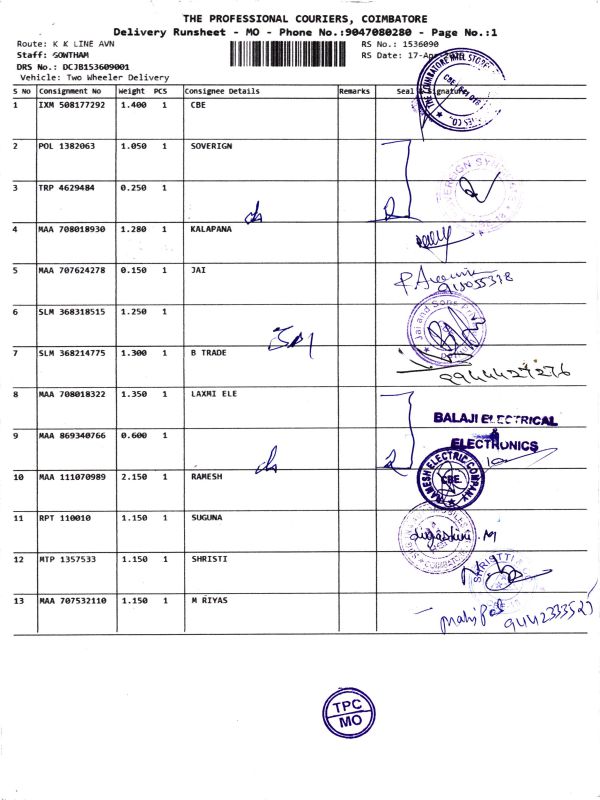 THE PROFESSIONAL COURIERS, COIMBATORE
Delivery Runsheet - MO - Phone No.:9047080280 - Page No.:1
Route: K K LINE AVN
RS No.: 1536090
Staff: GOWTHAM
RS Date: 17-Apr
DRS No.: DCJB153609001
Vehicle: Two Wheeler Delivery
S No Consignment No Weight PCS Consignee Details Remarks Seal & Signature
1 IXM 508177292 1.400 1 CBE
2 POL 1382063 1.050 1 SOVERIGN
3 TRP 4629484 0.250 1
4 MAA 708018930 1.280 1 KALAPANA
5 MAA 707624278 0.150 1 JAI
6 SLM 368318515 1.250 1
Jai and Sons
7 SLM 368214775 1.300 1 B TRADE
9944427276
8 MAA 708018322 1.350 1 LAXMI ELE
BALAJI ELECTRICAL
& ELECTRONICS
9 MAA 869340766 0.600 1
10 MAA 111070989 2.150 1 RAMESH
RAMESH ELECTRIC COMPANY
CBE.
11 RPT 110010 1.150 1 SUGUNA
12 MTP 1357533 1.150 1 SHRISTI
SHRISTTI
13 MAA 707532110 1.150 1 M RIYAS
TPC
MO